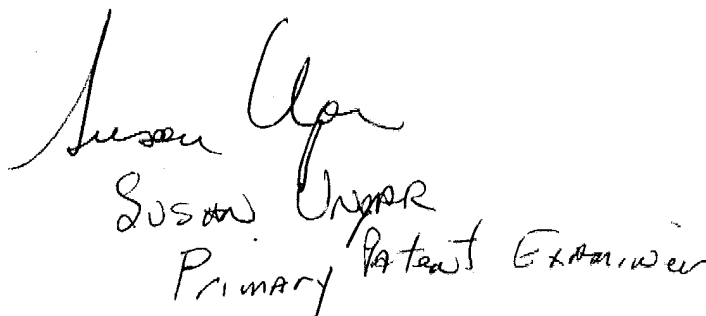 Susan Ungar
SUSAN UNGAR
Primary Patent Examiner